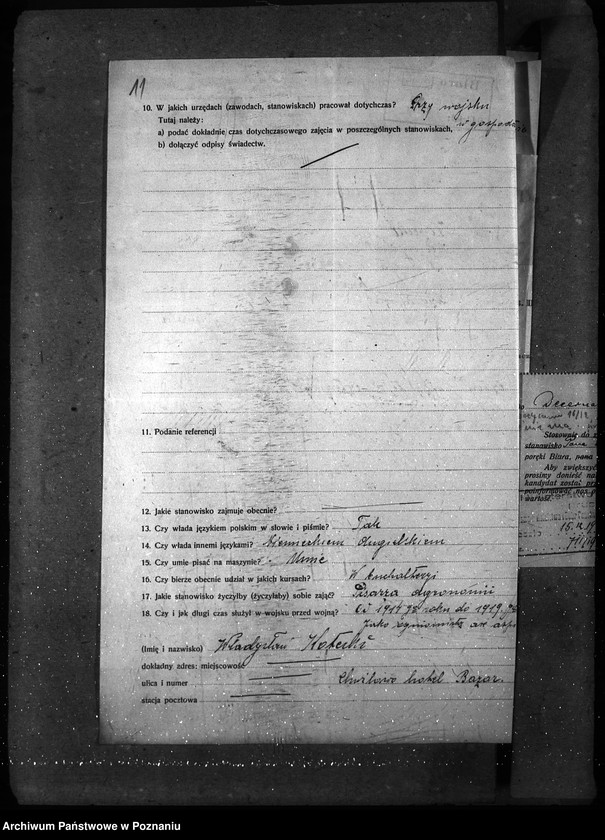 11
10. W jakich urzędach (zawodach, stanowiskach) pracował dotychczas? Przy wojsku
Tutaj należy: w gospodar
a) podać dokładnie czas dotychczasowego zajęcia w poszczególnych stanowiskach,
b) dołączyć odpisy świadectw.
11. Podanie referencji
12. Jakie stanowisko zajmuje obecnie?
13. Czy włada językiem polskim w słowie i piśmie? Tak
14. Czy włada innemi językami? Niemieckiem Angielskiem
15. Czy umie pisać na maszynie? Umie
16. Czy bierze obecnie udział w jakich kursach? W buchalteryi
17. Jakie stanowisko życzyłby (życzyłaby) sobie zająć? Pisarza
18. Czy i jak długi czas służył w wojsku przed wojną? Od 1914 roku do 1919
jako
(Imię i nazwisko) Władysław
dokładny adres: miejscowość
ulica i numer Chwilowo hotel Bazar.
stacja pocztowa
Stosownie do
stanowisko
poręki Biura, pana
Aby zwiększyć
prosimy donieść na
kandydat został
poinformować nas
wartość.
Archiwum Państwowe w Poznaniu